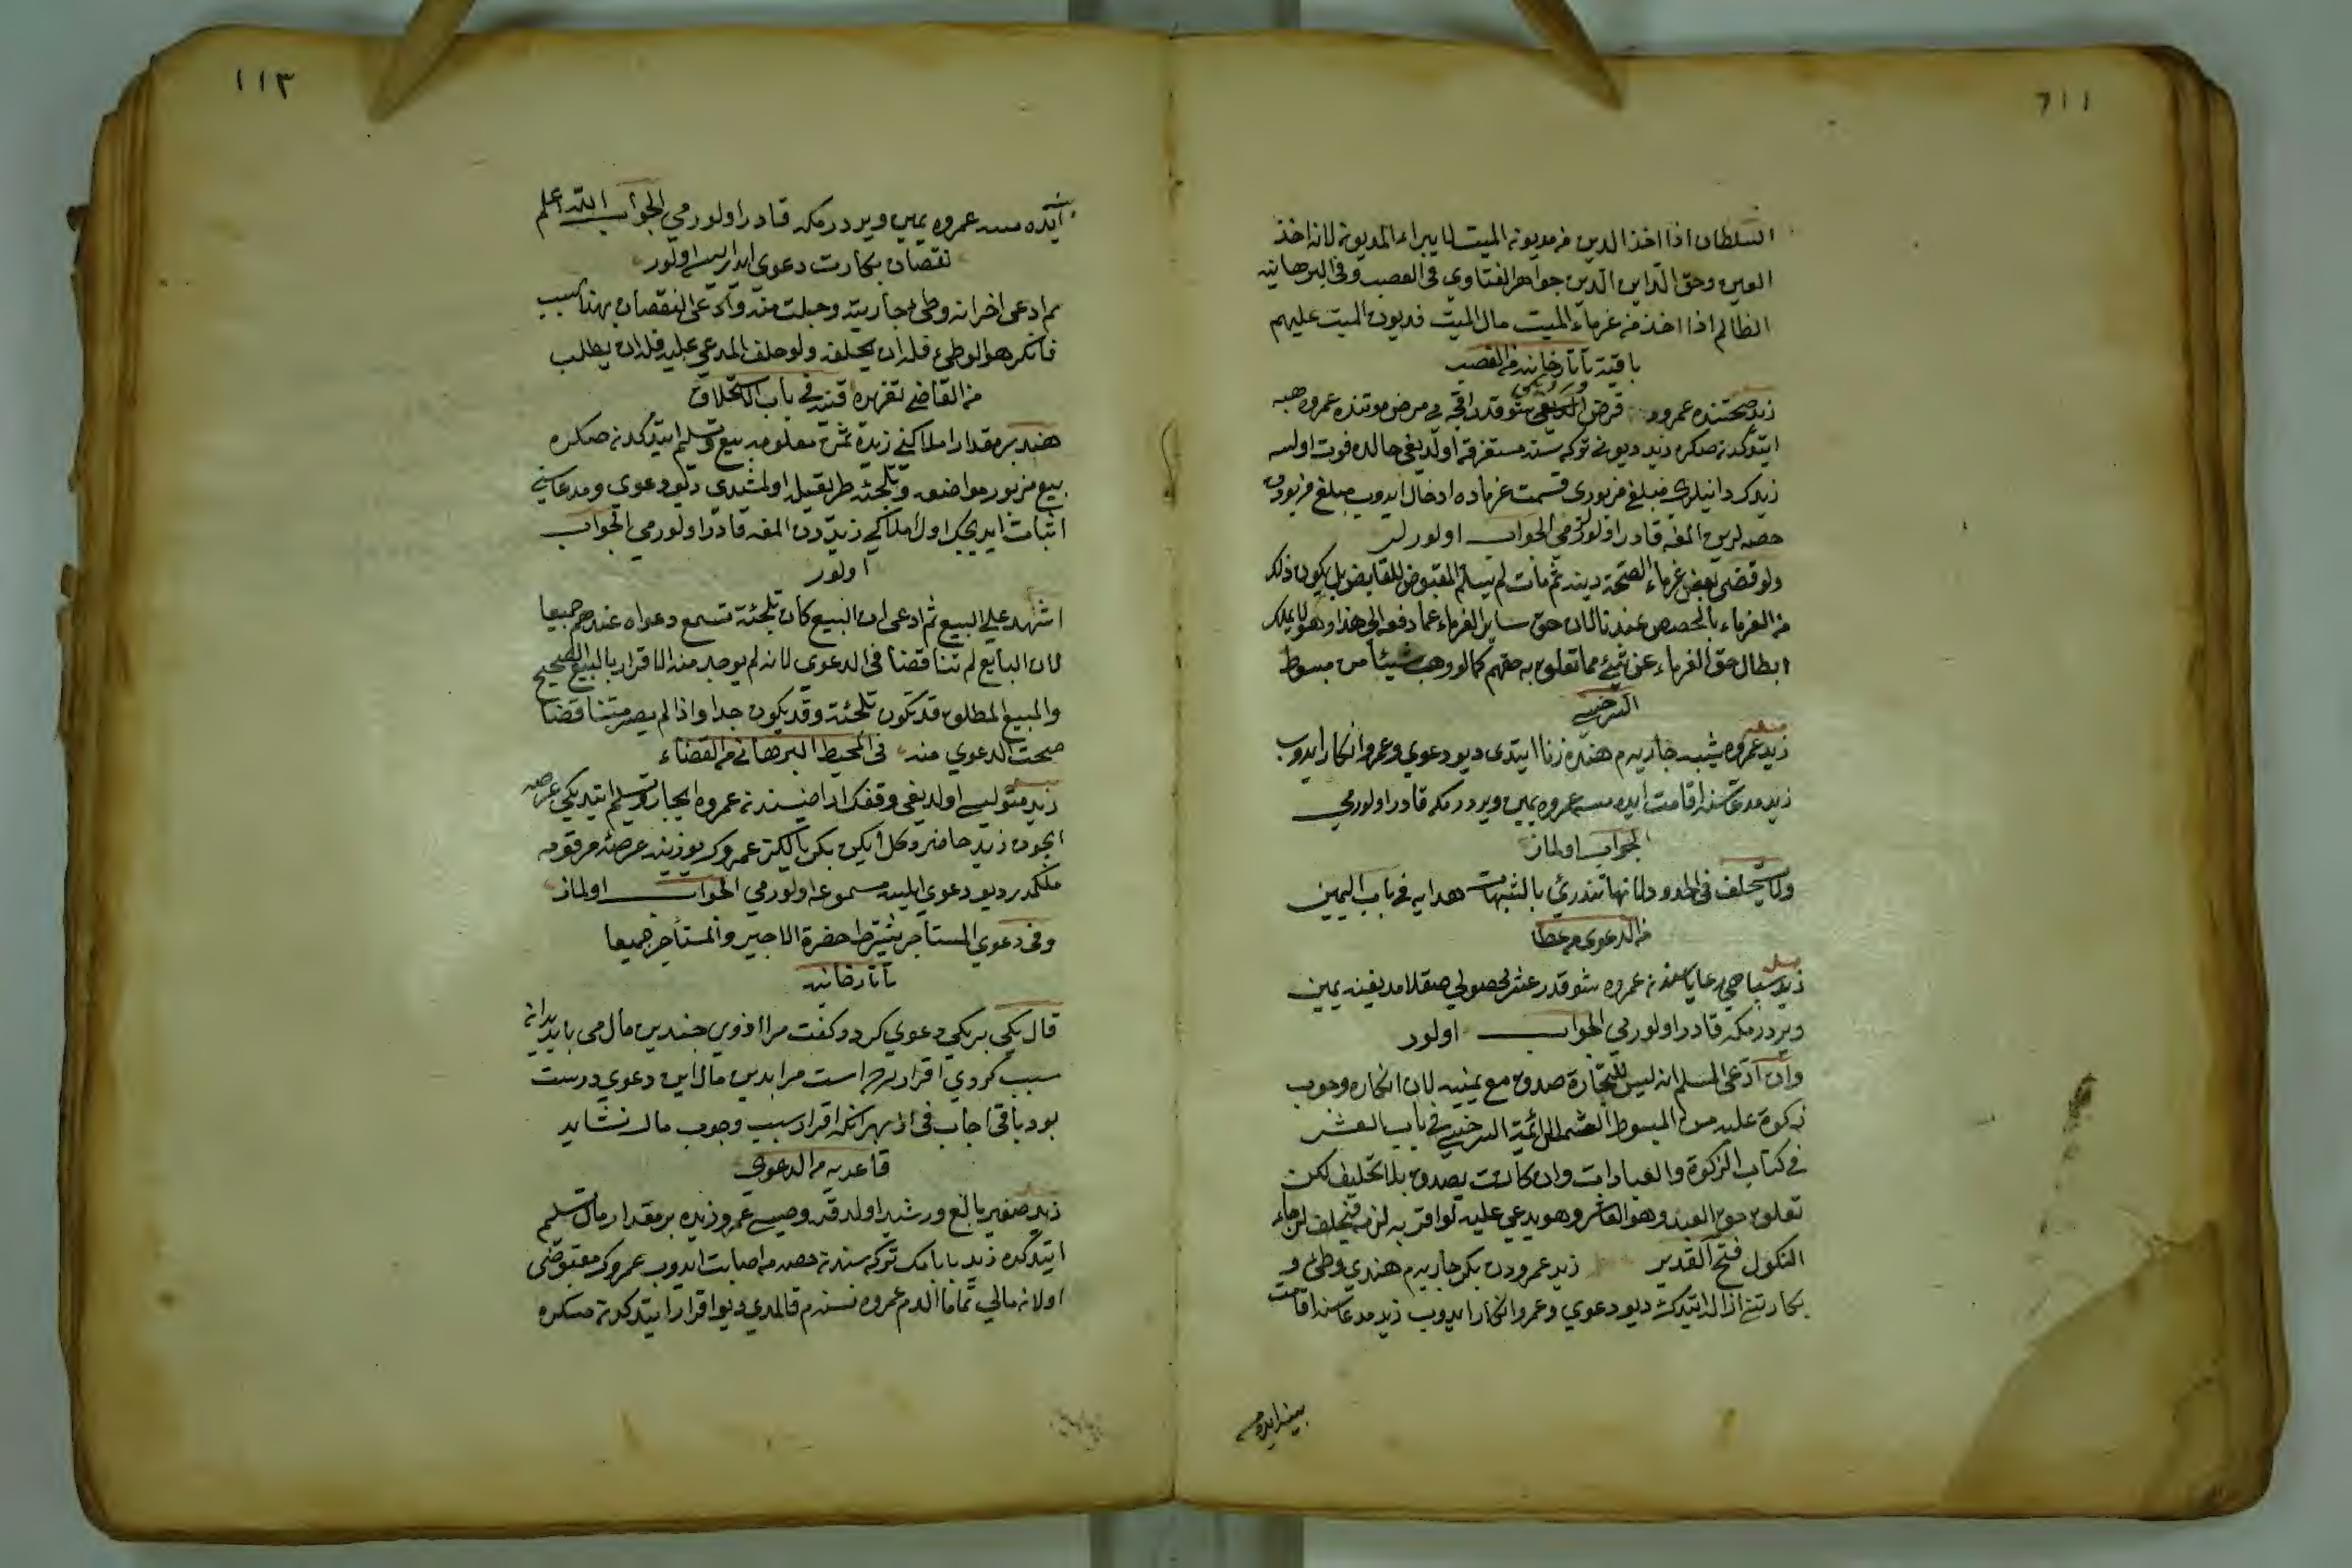 ١١٢
السلطان اذا اخذ الدين من مديونه الميت لا يبرأ المديون لانه اخذ
العين وحق الداين الدين جواهر الفتاوي فى الغصب وفى البرهانيه
الظالم اذا اخذ من غرماء الميت مال الميت فديون الميت عليهم
باقية تاتارخانيه من الغصب
زيد صحتنده عمرودن قرض الديغى شو قدر اقچه يى مرض موتنده عمروه هبه
ايتدكدنصكره زيد ديونى تركه سنه مستغرقه اولديغى حالده فوت اولسه
زيدك داينلرى مبلغ مزبورى قسمت غرماده ادخال ايدوب مبلغ مزبوردن
حصه لرين المغه قادر اولورلرمى الجواب اولورلر
ولو قضى بعض غرماء الصحة دينه ثم مات لم يسلم المقبوض للقابض بل يكون ذلك
من الغرماء بالحصص عندنا لان حق ساير الغرماء عما دفعه الى هذا وهو لا يملك
ابطال حق الغرماء عن شئ مما تعلق به حقهم كما لو وهب شيئا من مبسوط
السرخسى
زيد عمروه شبه جاريه م هنده زنا ايتدى ديو دعوى وعمرو انكار ايدوب
زيد مدعاسنه اقامت ايده مسه عمروه يمين ويردرمكه قادر اولورمى
الجواب اولماز
ولا يستحلف فى الحدود لانها تندرئ بالشبهات هدايه فى باب اليمين
من الدعوى
زيد سپاهى رعاياسندن عمروه شو قدر عشر محصولى صقلامديغنه يمين
ويردرمكه قادر اولورمى الجواب اولور
وان ادعى المسلم انه ليس للتجارة صدق مع يمينه لان انكاره وجوب
زكوة عليه من المبسوط لشمس الائمة السرخسى فى باب العشر
فى كتاب الزكوة والعبادات وان كانت يصدق بلا تحليف لكن
تعلق حق العبد وهو العاشر وهو يدعى عليه لو اقر به لزمه فيحلف لرجاء
النكول فتح القدير زيد عمرودن بكر جاريه م هندى وطئ و
بكارتنى ازاله ايتدك ديو دعوى وعمرو انكار ايدوب زيد مدعاسنه اقامت
بينه ايده مسه
١١٣
ايده مسه عمروه يمين ويردرمكه قادر اولورمى الجواب الله اعلم
نقصان بكارت دعوى ايدرسه اولور
م ادعى اخر انه وطئ جاريته وحبلت منه وادعى النقصان بهذا السبب
فانكر هو الوطئ فله ان يحلفه ولو حلف المدعى عليه فله ان يطلب
من القاضى تعزيره قنيه فى باب الاستحلاف
هند بر مقدار املاكنى زيده ثمن معلومه بيع وتسليم ايتدكدنصكره
بيع مزبور مواضعه وتلجئه طريقيله اولمشدى ديو دعوى ومدعاسنى
اثبات ايديجك اول املاكى زيددن المغه قادر اولورمى الجواب
اولور
اشهد على البيع ثم ادعى ان البيع كان تلجئة تسمع دعواه عندهم جميعا
لان البايع لم تناقضا فى الدعوى لانه لم يوجد منه الا قرار بالبيع الصحيح
والمبيع المطلق قد تكون تلجئة وقد يكون جدا واذا لم يصر متناقضا
صحت الدعوى منه فى المحيط البرهانى من القضاء
زيد متوليسى اولديغى وقفك اراضيسندن عمروه ايجار وتسليم ايتديكى عرصه
ايچون زيد حاضر دكل ايكن بكر يالكز عمروك يوزينه عرصۀ مرقومه
ملكمدر ديو دعوى ايلسه مسموعه اولورمى الجواب اولماز
وفى دعوى المستأجر يشترط حضرة الاجير والمستأجر جميعا
تاتارخانيه
قال يكى بر يكى دعوى كرد وكفت مرا از وى چندين مال مى بايد بدانه
سبب كردى اقرار كرده است مرا بدين مال اين دعوى درست
بود باقى اجاب فى از بهر انكه اقرار سبب وجوب مال نشايد
قاعديه من الدعوى
زيد صغير بالغ ورشيد اولدقده وصيسى عمرو زيده بر مقدار مال تسليم
ايتدكده زيد بابامك تركه سندن حصه مه اصابت ايدوب عمروك مقبوضى
اولان مالى تماما الدم عمروه نسنه م قالمدى ديو اقرار ايتدكدنصكره